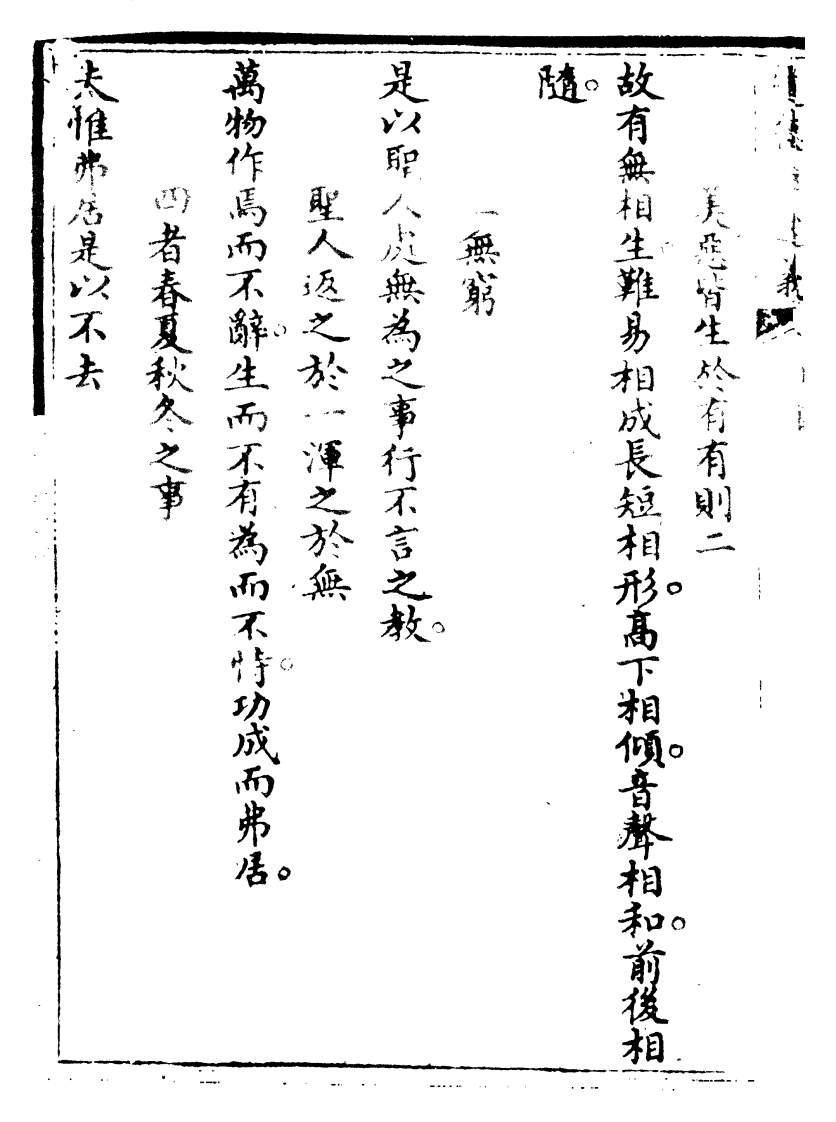 美惡皆生於有有則二
故有無相生難易相成長短相形。高下相傾。音聲相和。前後相
隨。
一無窮
是以聖人處無為之事行不言之教。
聖人返之於一渾之於無
萬物作焉而不辭。生而不有為而不恃。功成而弗居。
四者春夏秋冬之事
夫惟弗居是以不去